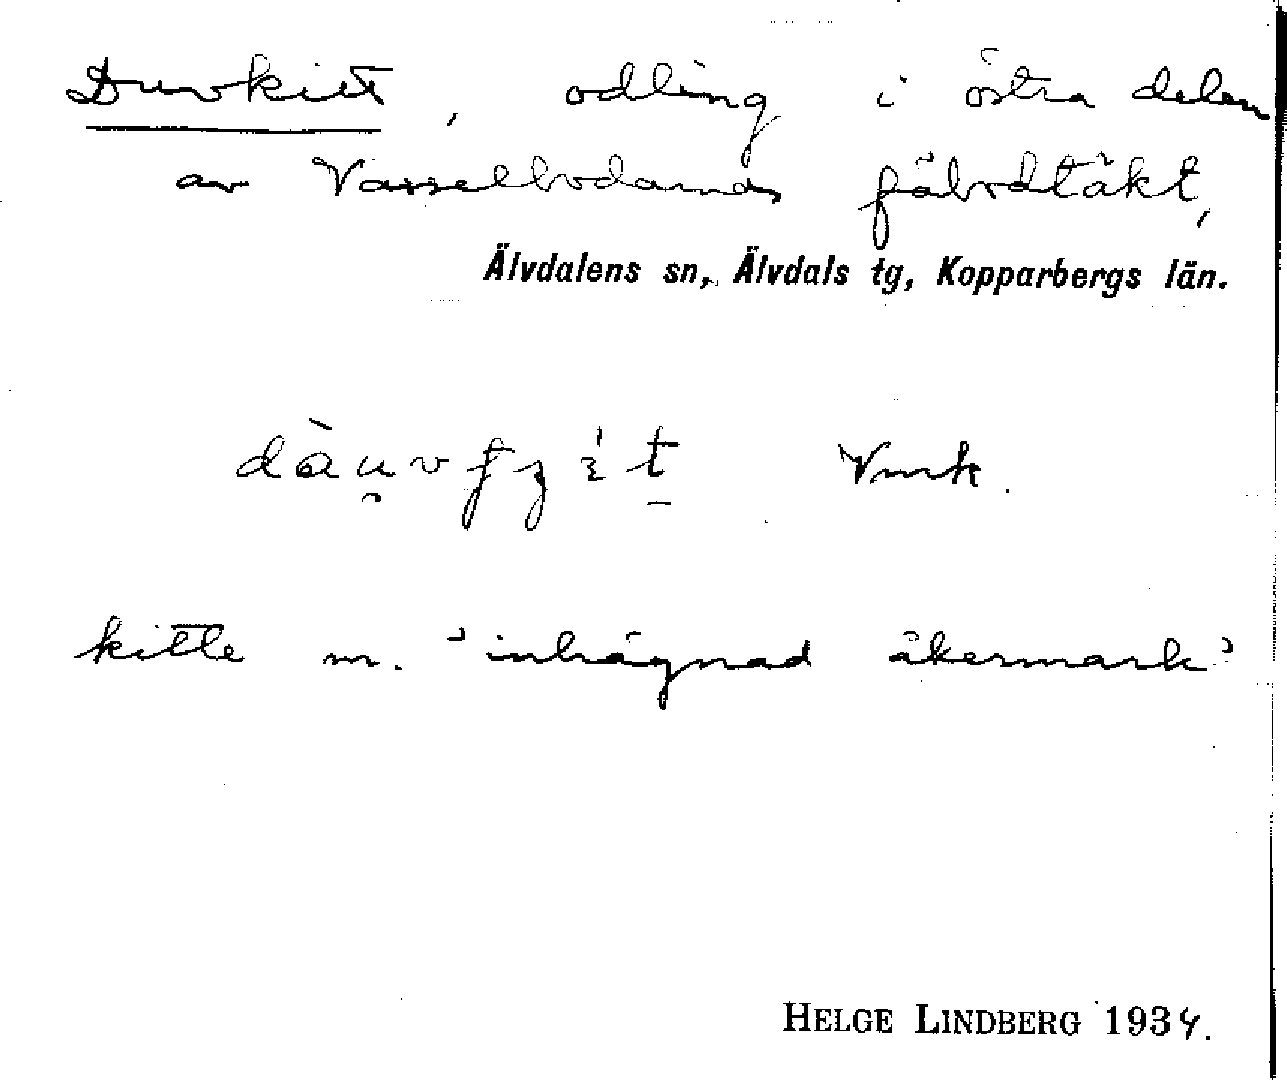 Duvkitt, odling i östra delen
av Vasselbodarnas fäbodtäkt,
Älvdalens sn, Älvdals tg, Kopparbergs län.
Vmk.
kitte m. 'inhägnad åkermark'
HELGE LINDBERG 1934.